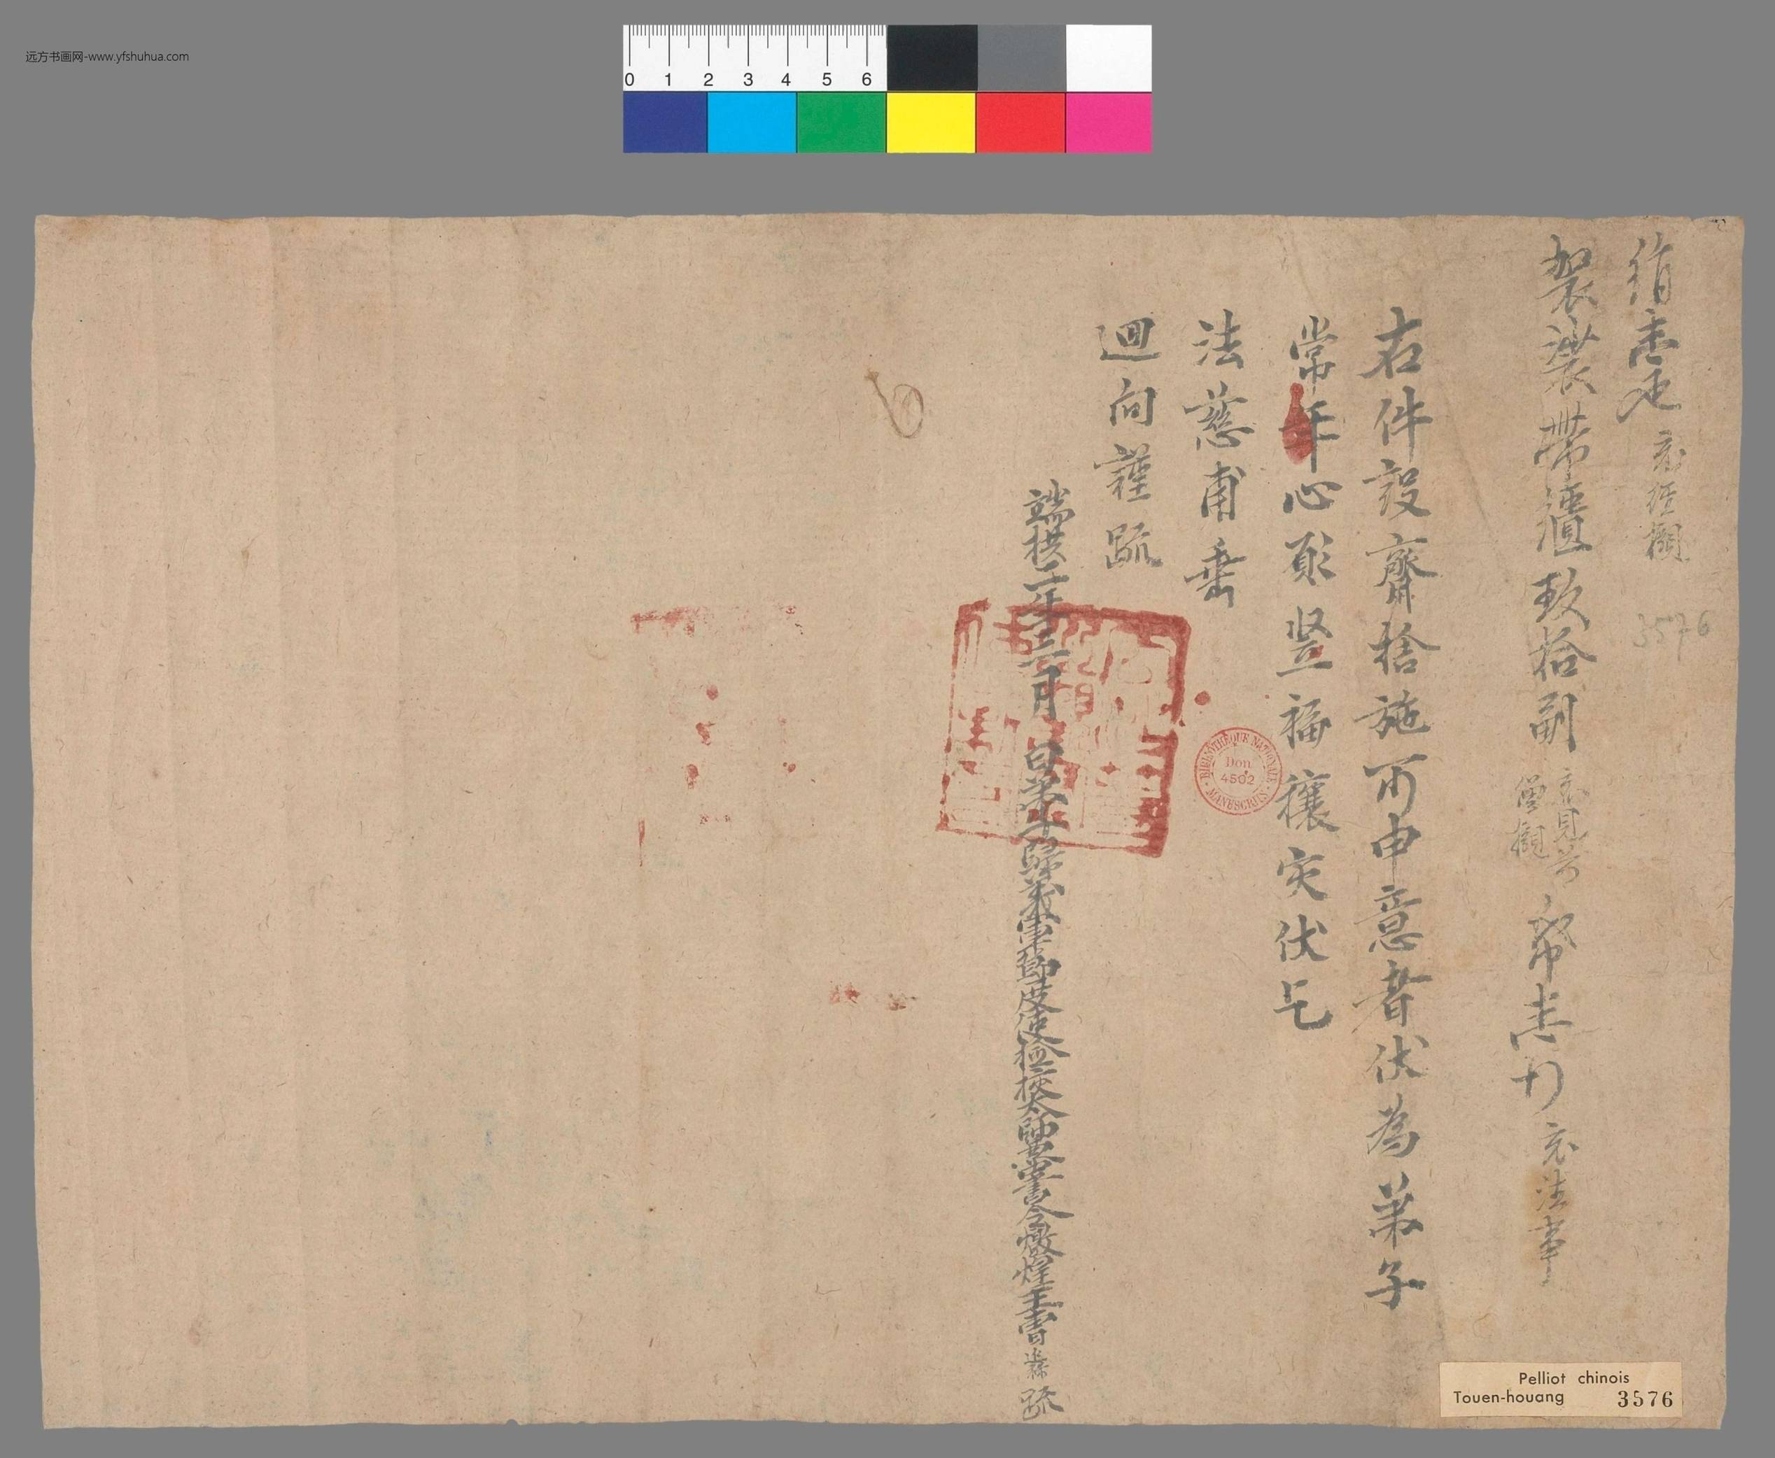 远方书画网-www.yfshuhua.com
0 1 2 3 4 5 6
絹壹疋 充經襯
袈裟帶襪玖拾副 充見前僧襯 綵壹 充法事
右件設齋捨施所申意者伏為弟子
常年心願豎福穰灾伏乞
法慈甫垂
迴向謹疏
端拱二年三月 日弟子歸義軍節度使檢挍太師兼中書令燉煌王曹 疏
3576
BIBLIOTHÈQUE NATIONALE
Don
4502
MANUSCRITS
Pelliot chinois
Touen-houang 3576